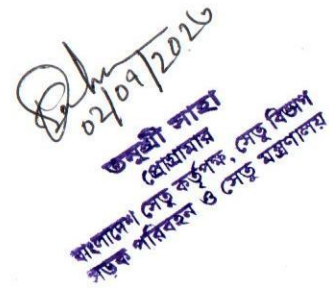 02/09/2020
তনুশ্রী সাহা
প্রোগ্রামার
বাংলাদেশ সেতু কর্তৃপক্ষ, সেতু বিভাগ
সড়ক পরিবহন ও সেতু মন্ত্রণালয়